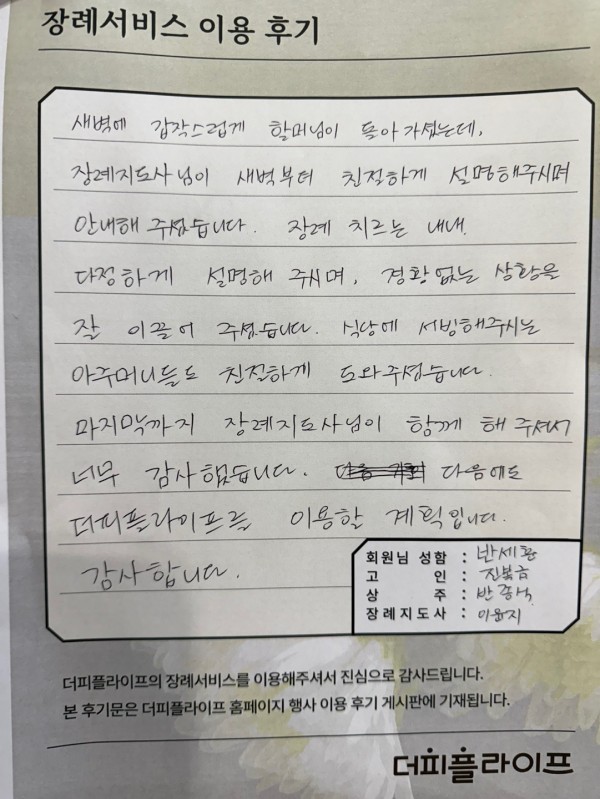 장례서비스 이용 후기
새벽에 갑작스럽게 할머님이 돌아가셨는데,
장례지도사님이 새벽부터 친절하게 설명해주시며
안내해 주셨습니다. 장례 치르는 내내
다정하게 설명해 주시며, 경황없는 상황을
잘 이끌어 주셨습니다. 식당에 서빙해주시는
아주머니들도 친절하게 도와주셨습니다.
마지막까지 장례지도사님이 함께 해 주셔서
너무 감사했습니다. 다음에도
더피플라이프를 이용할 계획입니다.
감사합니다.
회원님 성함 : 반세환
고 인 : 진복음
상 주 : 반종식
장례지도사 : 이윤지
더피플라이프의 장례서비스를 이용해주셔서 진심으로 감사드립니다.
본 후기문은 더피플라이프 홈페이지 행사 이용 후기 게시판에 기재됩니다.
더피플라이프